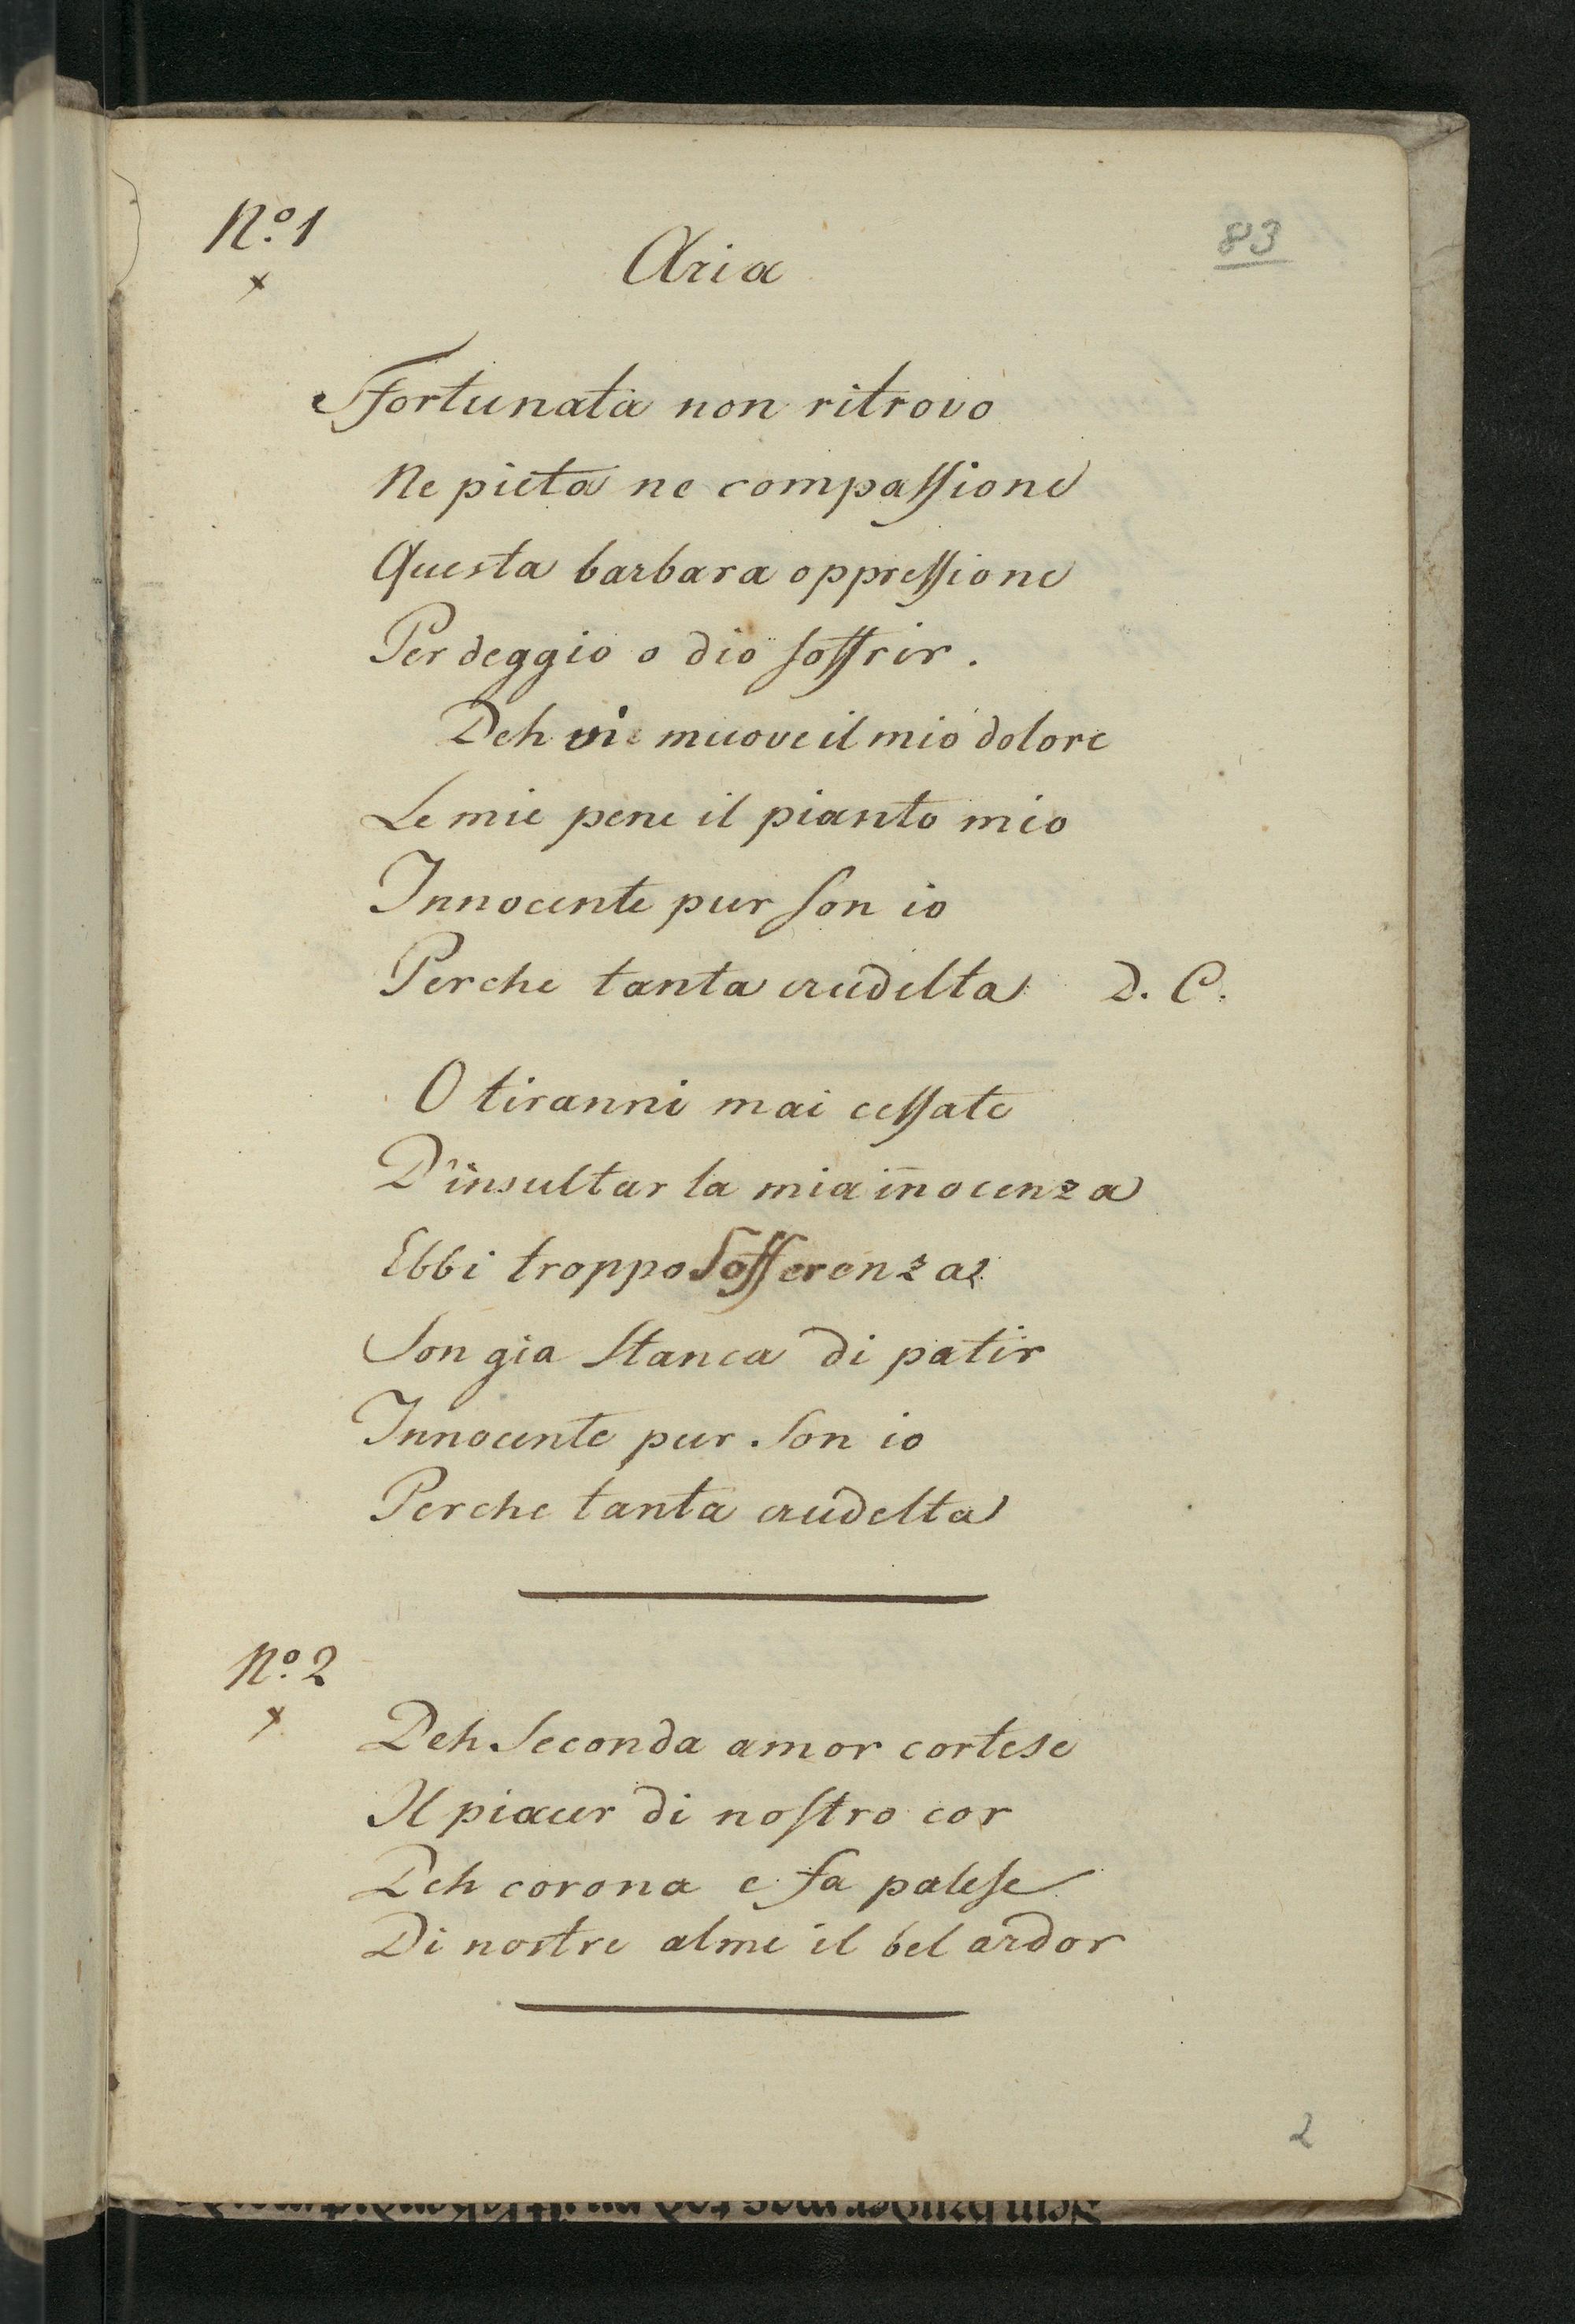 Nº. 1
83
x
Aria
Sfortunata non ritrovo
Ne pieta ne compassione
Questa barbara oppressione
Per deggio o dio soffrir.
Deh vi muove il mio dolore
Le mie pene il pianto mio
Innocente pur son io
Perche tanta crudelta D. C.
O tiranni mai cessate
D'insultar la mia iñocenza
Ebbi troppo Sofferenza
Son gia stanca di patir
Innocente pur son io
Perche tanta crudelta
Nº. 2
x
Deh Seconda amor cortese
Il piacer di nostro cor
Deh corona e fa palese
Di nostre alme il bel ardor
2